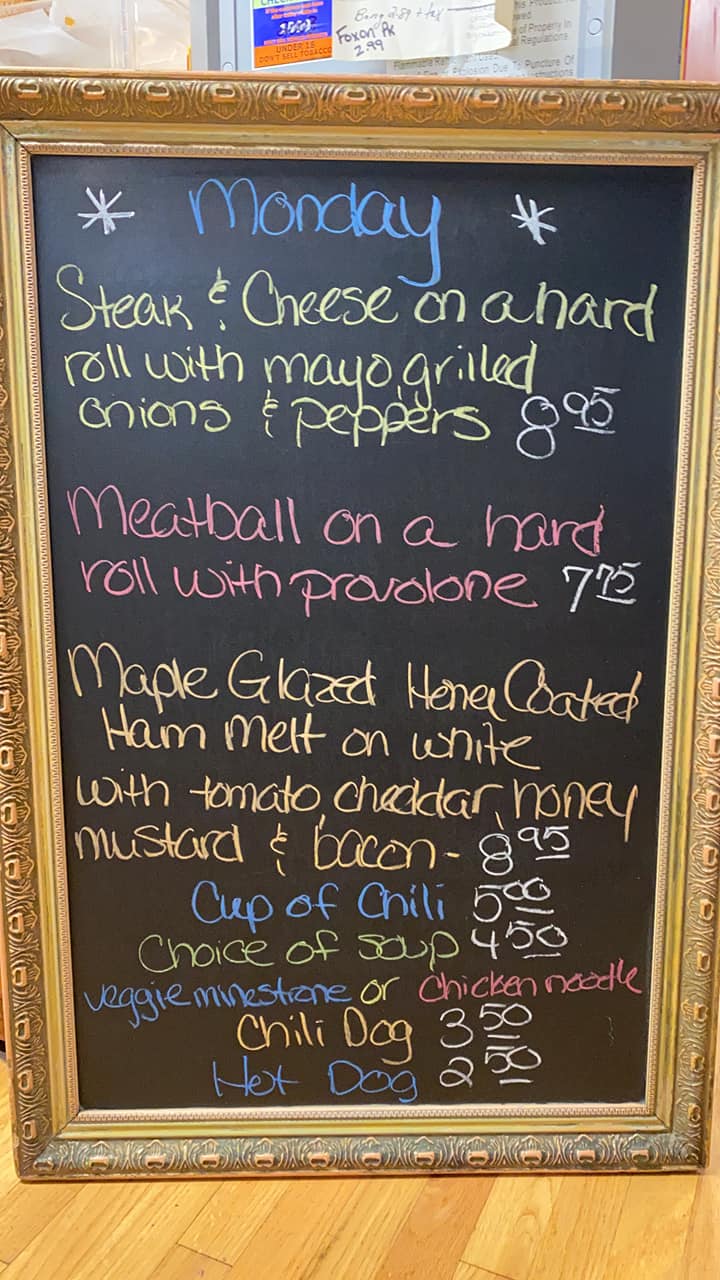 UNDER 18
DON'T SELL TOBACCO
Foxon Pk
2.99
of Property In
Regulations.
* Monday *
Steak & Cheese on a hard
roll with mayo, grilled
onions & peppers 8 95
Meatball on a hard
roll with provolone 7 75
Maple Glazed Honey Coated
Ham Melt on white
with tomato, cheddar, honey
mustard & bacon - 8 95
Cup of Chili 5 00
Choice of soup 4 50
veggie minestrone or chicken noodle
Chili Dog 3 50
Hot Dog 2 50